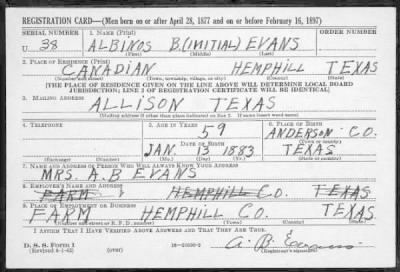 REGISTRATION CARD—(Men born on or after April 28, 1877 and on or before February 16, 1897)
SERIAL NUMBER 1. NAME (Print) ORDER NUMBER
U 38 ALBINOS B.(INITIAL) EVANS
(First) (Middle) (Last)
2. PLACE OF RESIDENCE (Print)
CANADIAN HEMPHILL TEXAS
(Number and street) (Town, township, village, or city) (County) (State)
[THE PLACE OF RESIDENCE GIVEN ON THE LINE ABOVE WILL DETERMINE LOCAL BOARD
JURISDICTION; LINE 2 OF REGISTRATION CERTIFICATE WILL BE IDENTICAL]
3. MAILING ADDRESS
ALLISON TEXAS
(Mailing address if other than place indicated on line 2. If same insert word same)
4. TELEPHONE 5. AGE IN YEARS 6. PLACE OF BIRTH
59 ANDERSON CO.
DATE OF BIRTH (Town or county)
JAN. 13 1883 TEXAS
(Exchange) (Number) (Mo.) (Day) (Yr.) (State or country)
7. NAME AND ADDRESS OF PERSON WHO WILL ALWAYS KNOW YOUR ADDRESS
MRS. A.B EVANS
8. EMPLOYER'S NAME AND ADDRESS
FARM HEMPHILL CO. TEXAS
9. PLACE OF EMPLOYMENT OR BUSINESS
FARM HEMPHILL CO. TEXAS
(Number and street or R. F. D. number) (Town) (County) (State)
I AFFIRM THAT I HAVE VERIFIED ABOVE ANSWERS AND THAT THEY ARE TRUE.
D. S. S. Form 1 A. B. Evans
(Revised 4-1-42) (over) (Registrant's signature)